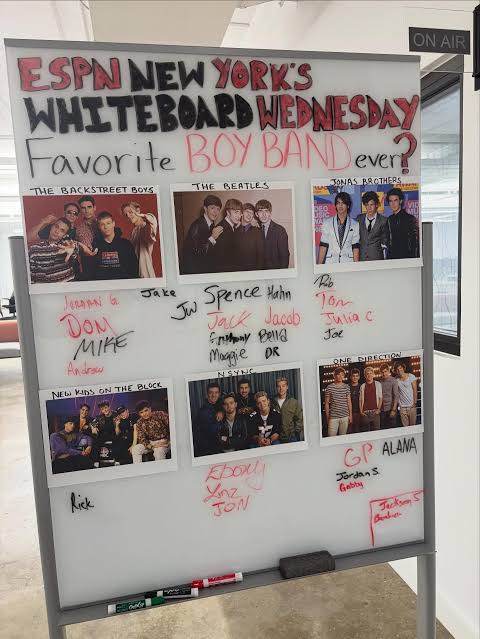 ON AIR
ESPN NEW YORK'S
WHITEBOARD WEDNESDAY
Favorite BOY BAND ever?
THE BACKSTREET BOYS
THE BEATLES
JONAS BROTHERS
Jordan G.
DOM
MIKE
Andrew
Jake
JW
Spence Hahn
Jack Jacob
Anthony Bella
Maggie DR
Rob
Tom
Julia C
Joe
NEW KIDS ON THE BLOCK
N SYNC
ONE DIRECTION
Rick
Ebony
Linz
JON
GP ALANA
Jordan S.
Gabby
Jackson 5
EXPO